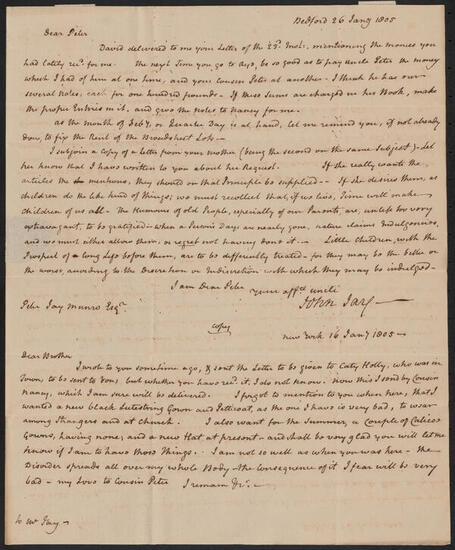 Bedford 26 Jany 1805
Dear Peter
David delivered to me your Letter of the 23d. Inst. mentioning the monies you
had lately recd. for me. The next Time you go to Rye, be so good as to pay uncle Peter the money
which I had of him at one time, and your cousin Peter at another - I think he has our
several notes, each for one hundred pounds - If these Sums are charged in his Book, make
the proper Entries in it, and give the notes to Nancy for me.
as the month of Feby. or Quarter Day is at hand, let me remind you, if not already
done, to fix the Rent of the Broadstreet Lots -
I subjoin a copy of a Letter from your mother (being the second on the same Subject). Let
her know that I have written to you about her Request. If she really wants the
articles she mentions, they should on that Principle be supplied -- If she desires them, as
children do the like kind of Things; we must recollect that, if we live, Time will make
children of us all - The Humours of old People, especially of our Parents, are, unless too very
extravagant, to be gratified - when a Persons Days are nearly gone, nature claims Indulgences,
and we must either allow them, or regret not having done it - Little Children, with the
Prospect of a long Life before them, are to be differently treated - for they may be the better or
the worse, according to the Discretion or Indiscretion with which they may be indulged -
I am Dear Peter
your affte. uncle
John Jay
Peter Jay Munro Esqr.
(copy)
New York 16 Jany 1805 -
Dear Brother
I wrote to you sometime ago, & sent the Letter to be given to Caty Holly, who was in
Town, to be sent to you, but whether you have recd. it, I do not know. Now this I send by Cousin
Nancy, which I am sure will be delivered. I forgot to mention to you when here, that I
wanted a new black Lutestring Gown and Petticoat, as the one I have is very bad, to wear
among Strangers and at church. I also want for the Summer, a Couple of Calico
Gowns, having none; and a new Hat at present - and shall be very glad you will let me
know if I am to have those Things. I am not so well as when you was here - the
Disorder spreads all over my whole Body - the Consequence of it I fear will be very
bad - my Love to Cousin Peter I remain &c. -
to Mr Jay -